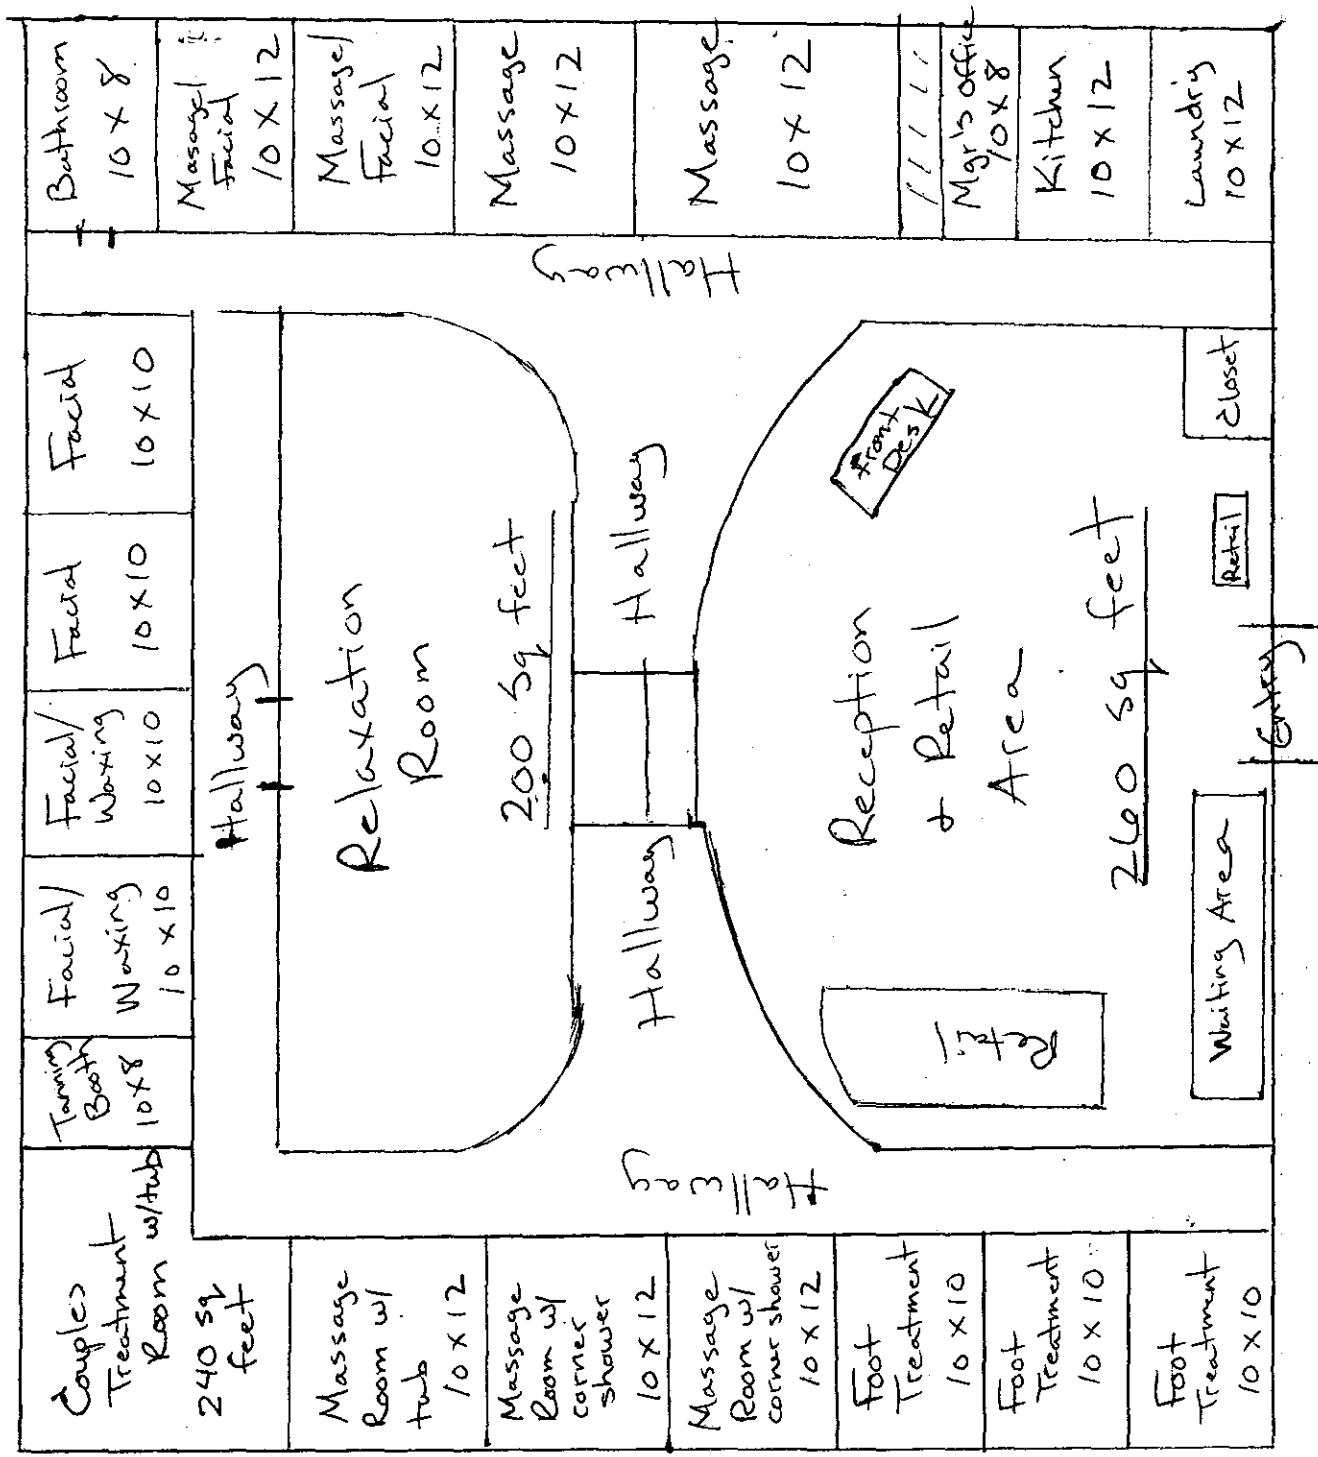 Bathroom
10 X 8
Masagel
Facial
10 X 12
Massage/
Facial
10 X 12
Massage
10 X 12
Massage
10 X 12
Mgr's office
10 X 8
Kitchen
10 X 12
Laundry
10 X 12
Hallway
Facial
10 X 10
Facial
10 X 10
Facial/
Waxing
10 X 10
Facial/
Waxing
10 X 10
Tanning
Booth
10 X 8
Hallway
Relaxation
Room
200 Sq feet
Hallway
Hallway
Front
Desk
Reception
+ Retail
Area
260 sq feet
Closet
Retail
Entry
Waiting Area
Retail
Hallway
Couples
Treatment
Room w/tub
240 sq
feet
Massage
Room w/
tub
10 X 12
Massage
Room w/
corner
shower
10 X 12
Massage
Room w/
corner shower
10 X 12
Foot
Treatment
10 X 10
Foot
Treatment
10 X 10
Foot
Treatment
10 X 10